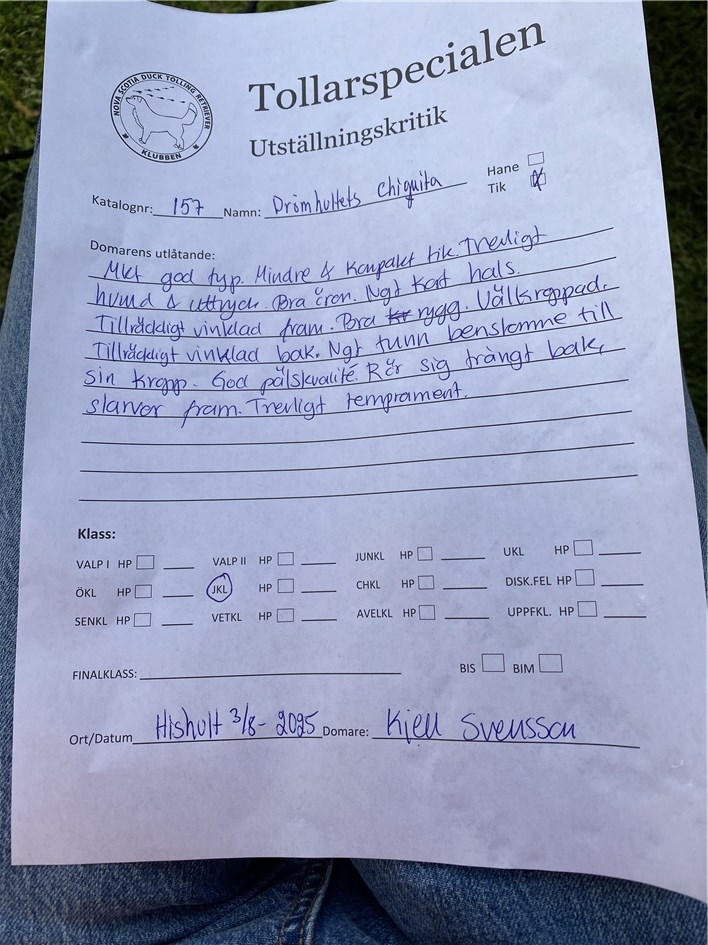 NOVA SCOTIA DUCK TOLLING RETRIEVER
KLUBBEN
Tollarspecialen
Utställningskritik
Hane
Tik
Katalognr: 157 Namn: Drömhultets Chiquita
Domarens utlåtande:
Mkt god typ. Mindre & Kompakt tik. Trevligt
huvud & uttryck. Bra öron. Ngt Kort hals.
Tillräckligt vinklad fram. Bra kr rygg. Välkroppad.
Tillräckligt vinklad bak. Ngt tunn benstomme till
sin kropp. God pälskvalité. Rör sig trångt bak,
slarvar fram. Trevligt temprament.
Klass:
VALP I HP VALP II HP JUNKL HP UKL HP
ÖKL HP JKL HP CHKL HP DISK.FEL HP
SENKL HP VETKL HP AVELKL HP UPPFKL. HP
FINALKLASS: BIS BIM
Ort/Datum Hishult 3/8- 2025 Domare: Kjell Svensson